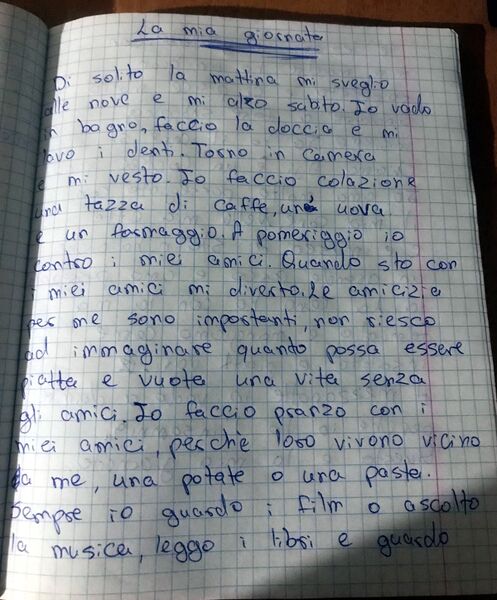 La mia giornata
Di solito la mattina mi sveglio
alle nove e mi alzo subito. Io vado
in bagno, faccio la doccia e mi
lavo i denti. Torno in camera
e mi vesto. Io faccio colazione
una tazza di caffe, una uova
e un formaggio. A pomeriggio io
contro i miei amici. Quando sto con
i miei amici mi diverto. Le amicizie
per me sono importanti, non riesco
ad immaginare quando possa essere
piatta e vuota una vita senza
gli amici. Io faccio pranzo con i
miei amici, perchè loro vivono vicino
da me, una potate o una paste.
Sempre io guardo i film o ascolto
la musica, leggo i libri e guardo